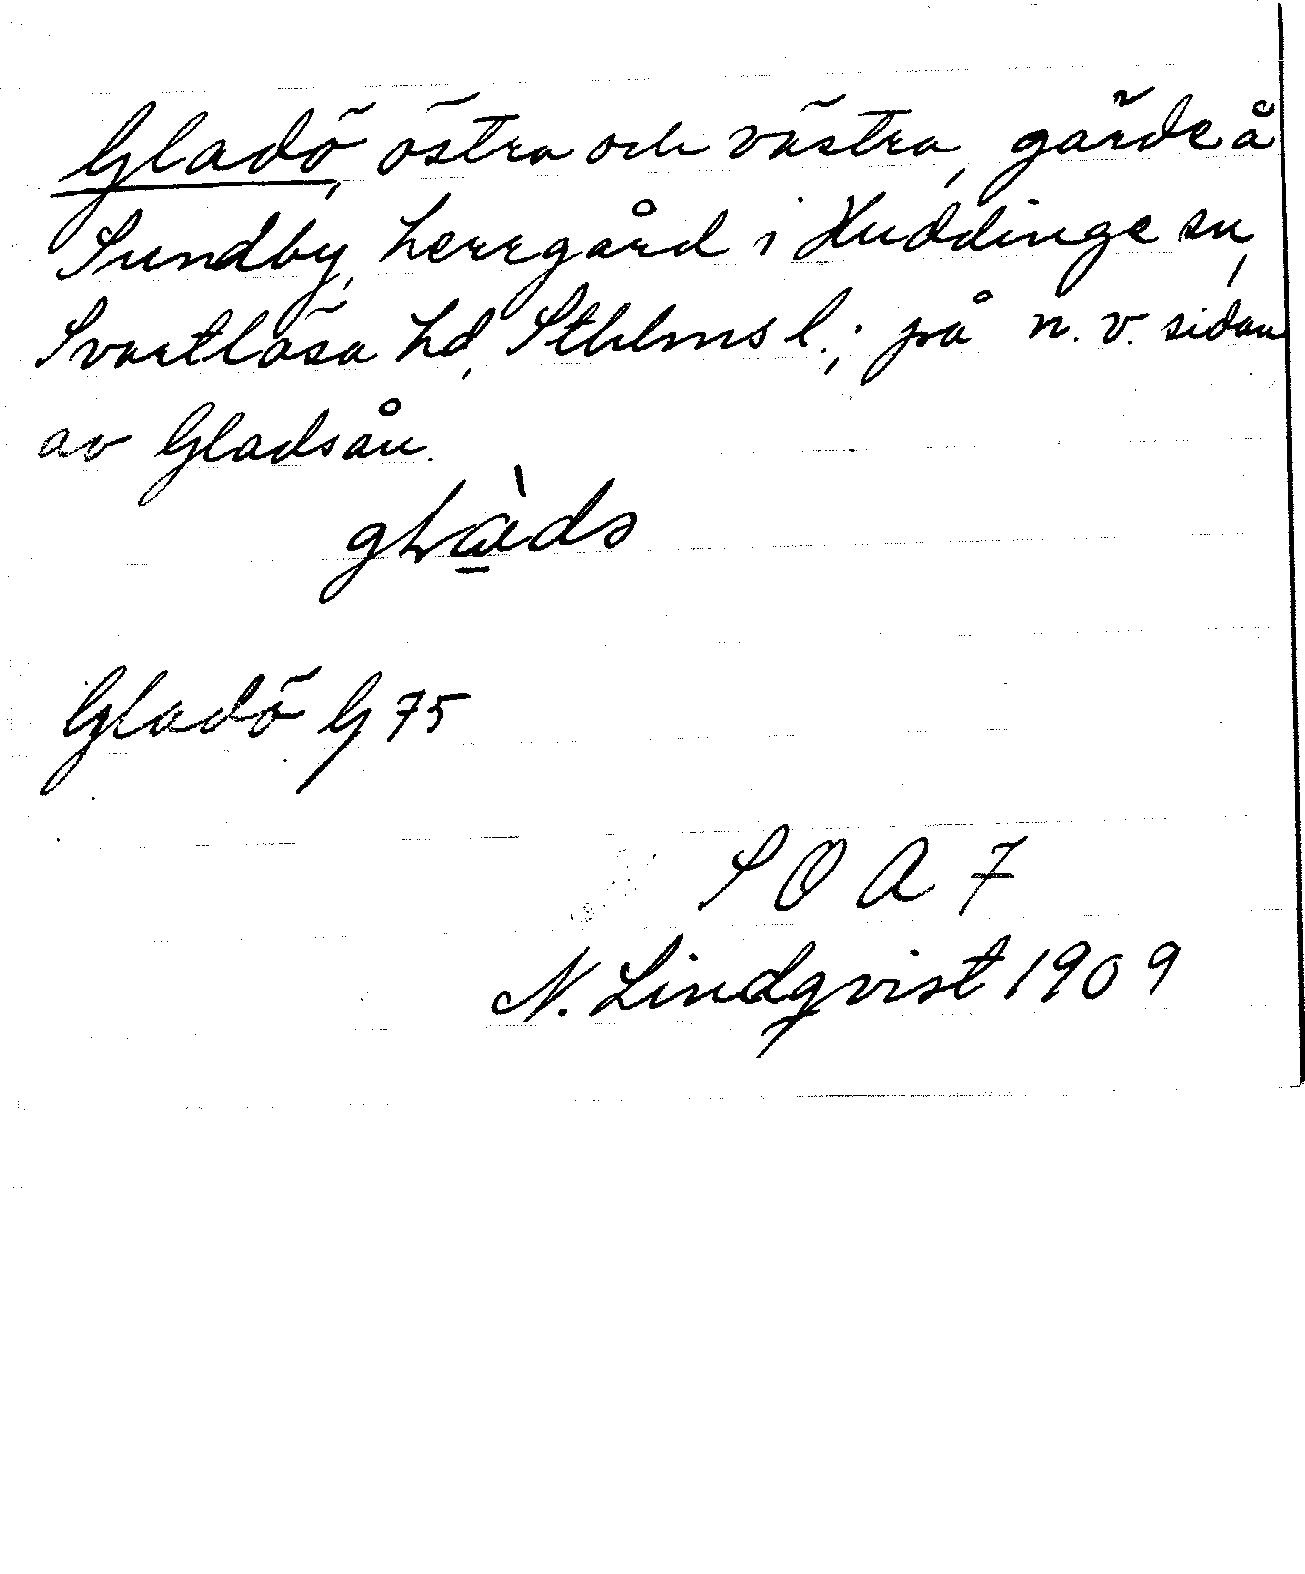 Gladö, östra och västra, gärde å
Sundby, herrgård i Huddinge sn,
Svartlösa hd, Sthlms l.; på n. v. sidan
av Gladsån.
Gladö G 75
S O A 7
N. Lindqvist 1909